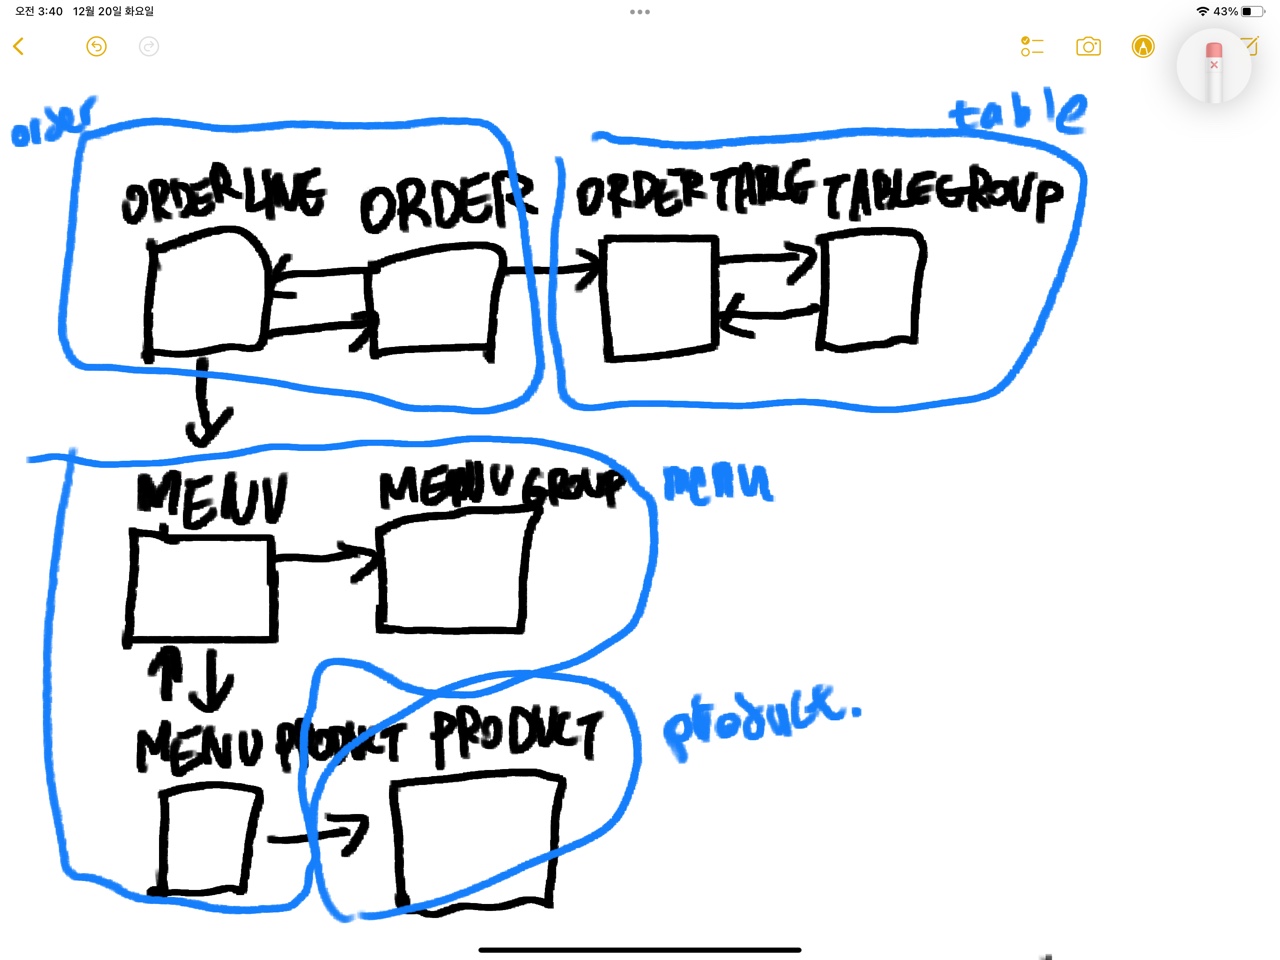 오전 3:40 12월 20일 화요일
43%
order
table
ORDER LINE
ORDER
ORDER TABLE
TABLEGROUP
MENU
MENU GROUP
menu
MENU PRODUCT
PRODUCT
product.